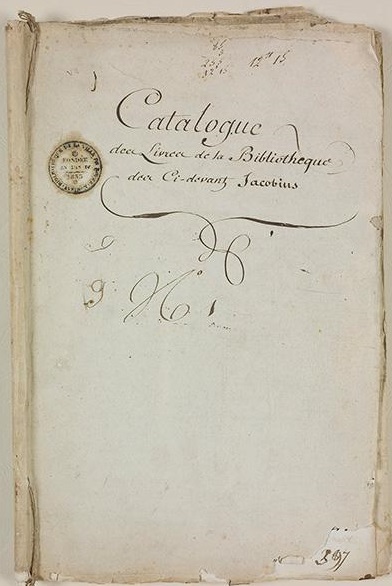 12ᵗᵗ 15ˢ
Catalogue
des Livres de la Bibliotheque
des Ci-devant Jacobins
9 N° 1
297